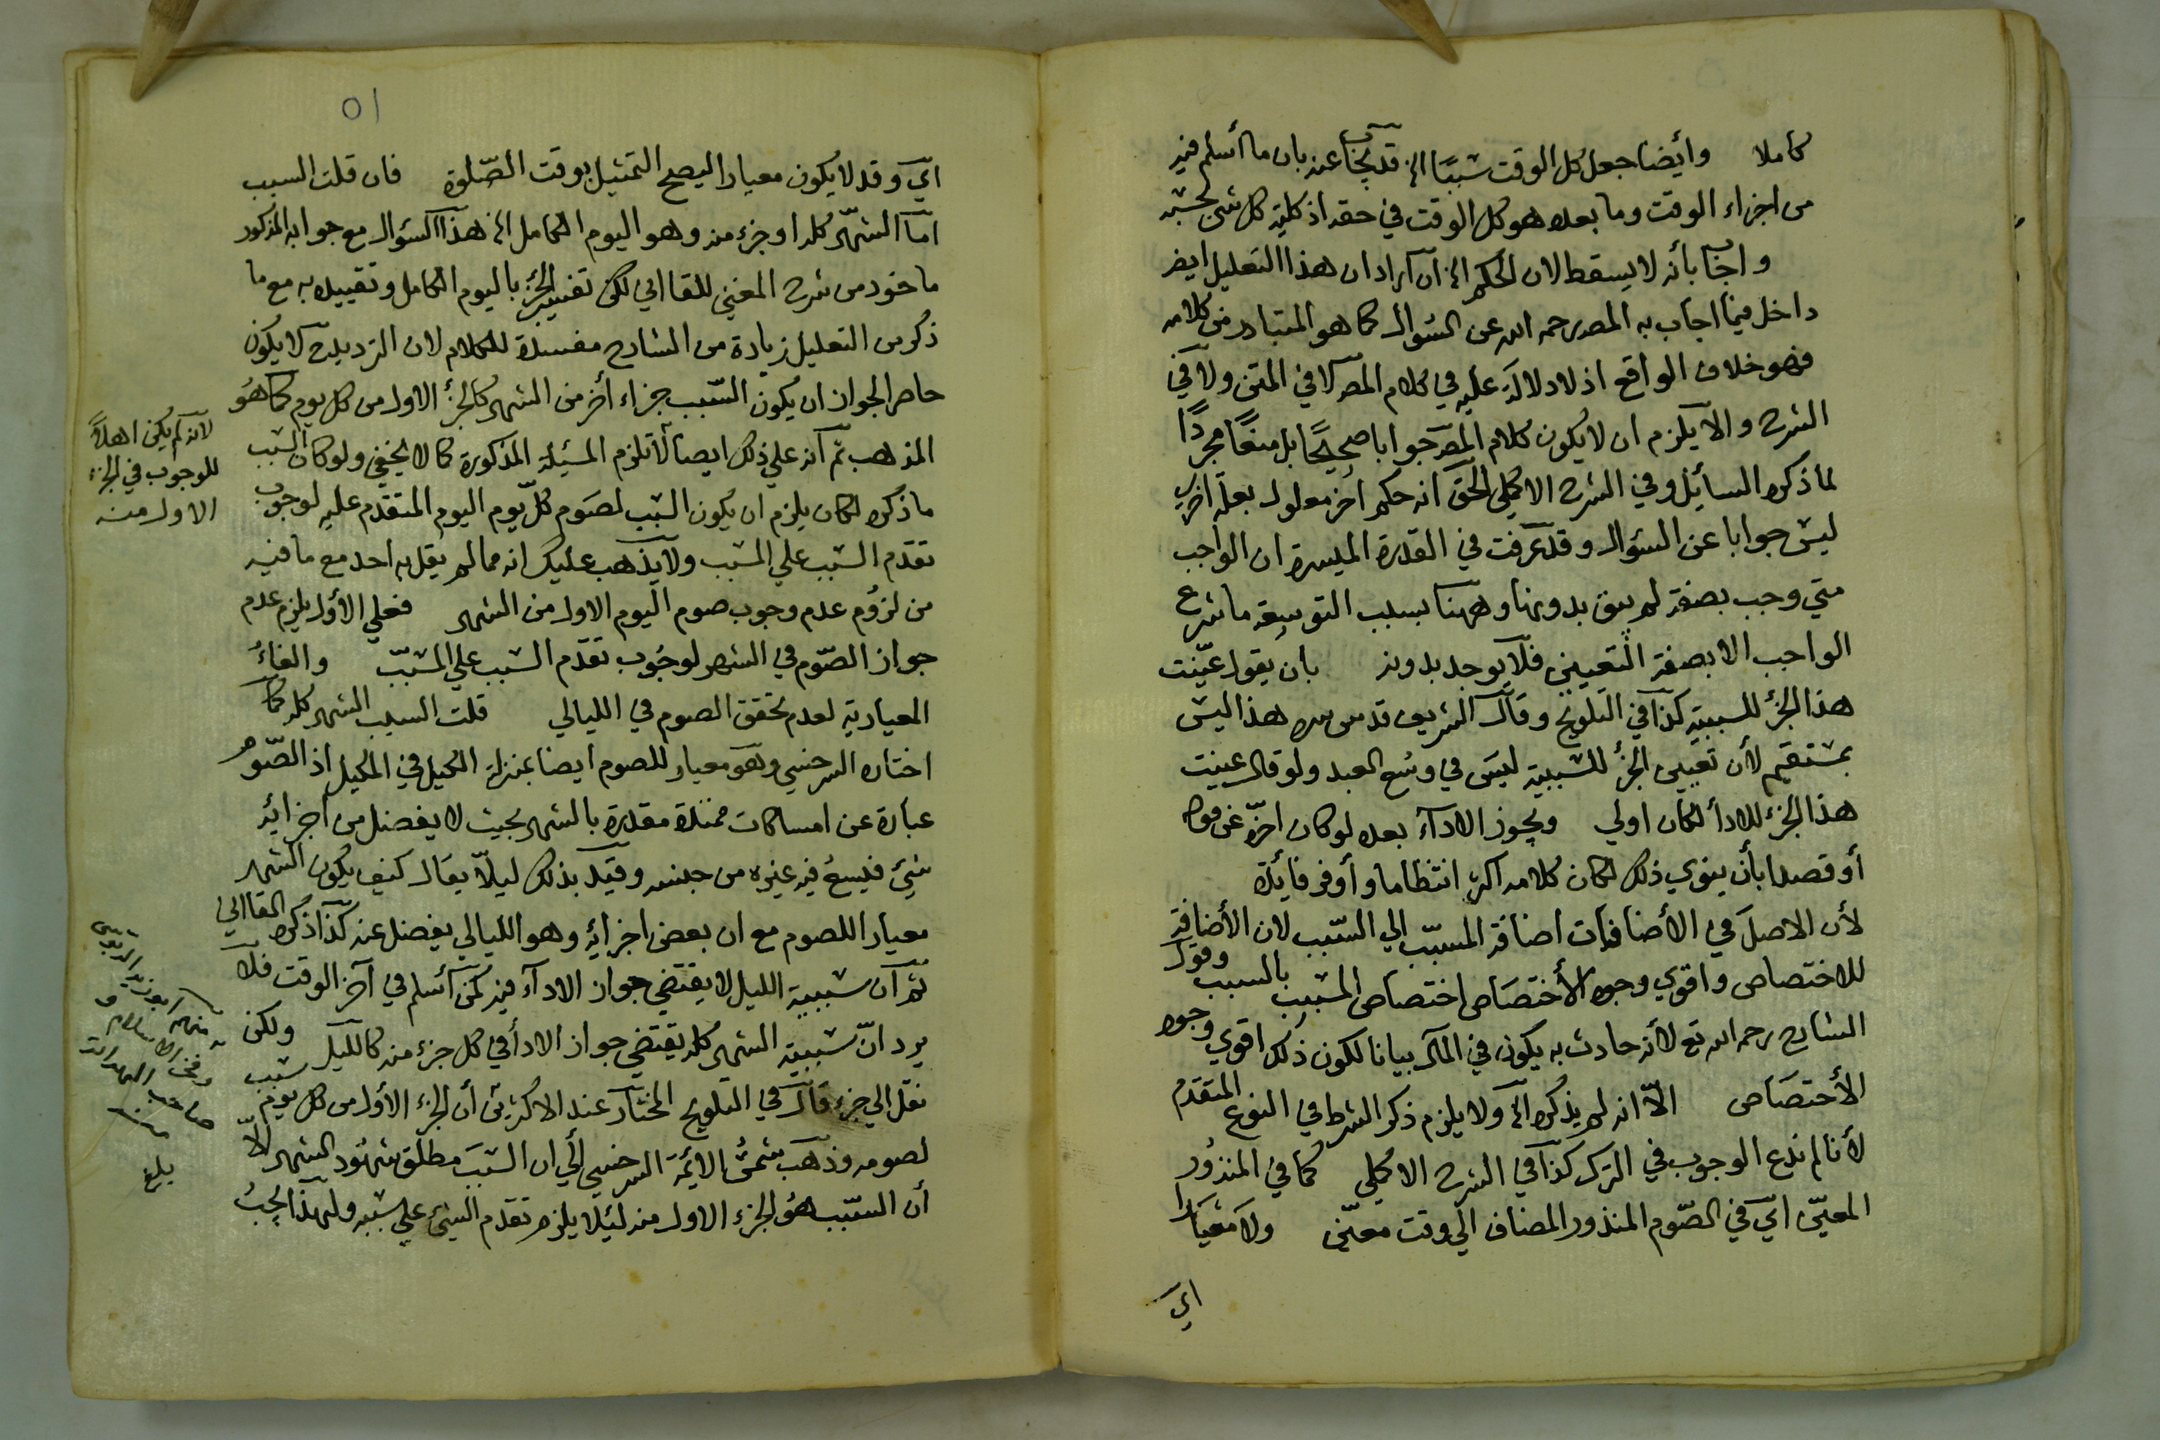 كاملا وأيضا جعل كل الوقت سببا الخ قد يجاب عنه بان ما أسلم فيه
من اجزاء الوقت وما بعده هو كل الوقت في حقه اذ كلية كل شئ بحسبه
واجاب بأنه لا يسقط لان الحكم الخ ان اراد ان هذا التعليل ايضا
داخل فيما اجاب به المصر رحمه الله عن السؤال كما هو المتبادر من كلامه
فهو خلاف الواقع اذ لا دلالة عليه في كلام المصر لا في المتن ولا في
الشرح والا يلزم ان لا يكون كلام المصر جوابا صحيحًا بل منعًا مجردًا
لما ذكره السائل وفي الشرح الاكملي الحق انه حكم اخر معلول بعلة اخري
ليس جوابا عن السؤال وقد عرفت في القدرة الميسرة ان الواجب
متي وجب بصفة لم يبق بدونها وههنا بسبب التوسعة ما شرع
الواجب الا بصفة التعيين فلا يوجد بدونه بان يقول عيّنت
هذا الجزء للسببية كذا في التلويح وقال الشريف قدس سره هذا ليس
بمستقيم لأن تعيين الجزء للسببية ليس في وسع العبد ولو قال عينت
هذا الجزء للادأ لكان اولي ويجوز الادآء بعده لو كان اخره عن
أو قصدا بأن ينوي ذلك لكان كلامه اكثر انتظاما وأوفر فائدة
لأن الاصل في الأضافات اضافة المسبّب الي السّبب لان الأضافة
للاختصاص واقوي وجوه الأختصاص اختصاص المسبب بالسبب وقول
الشارح رحمه الله تع لأنه حادث به يكون في المآل بيانا لكون ذلك اقوي وجوه
الأختصاص الاّ انه لم يذكره الخ ولا يلزم ذكر الشرط في النوع المتقدم
لأنا لم ندع الوجوب في الترك كذا في الشرح الاكملي كما في المنذور
المعيّن ايّ في الصّوم المنذور المضاف الي وقت معيّن ولا معيارا
اي
٥١
ايّ وقد لا يكون معيارا ليصح التمثيل بوقت الصّلوة فان قلت السبب
امّا الشهر كله او جزء منه وهو اليوم الكامل الخ هذا السؤال مع جوابه المذكور
ماخوذ من شرح المغني للقاآني لكن تفسير الجزء باليوم الكامل وتقييده به مع ما
ذكر من التعليل زيادة من الشارح مفسدة للكلام لان الترديد ح لا يكون
حاصرا لجواز ان يكون السّبب جزاء أخر من الشهر كالجزء الاول من كل يوم كما هو
المذهب ثم انه علي ذلك ايضا لا تلزم المسئلة المذكورة كما لا يخفي ولو كان السبب
ماذكره لكان يلزم ان يكون السبب لصوم كلّ يوم اليوم المتقدم عليه لوجوب
تقدم السبب علي المسبب ولا يذهب عليك انه مما لم يقل به احد مع ما فيه
من لزوم عدم وجوب صوم اليوم الاول من الشهر فعلي الأول يلزم عدم
جواز الصّوم في الشهر لوجوب تقدّم السبب علي المسبّب والغاءُ
المعيارية لعدم تحقق الصوم في الليالي قلت السبب الشهر كله كما
اختاره السرخسي وهو معيار للصوم ايضا بمنزلة الكيل في المكيل اذ الصّوم
عبارة عن امساكات ممتدة مقدرة بالشهر بحيث لا يفضل من اجزائه
شيئ فيسع فيه غيره من جنسه وقيد بذلك ليلاّ يقال كيف يكون الشهر
معيارا للصوم مع ان بعض اجزائه وهو الليالي يفضل عنه كذا ذكره القاآني
ثم ان سببية الليل لا يقتضي جواز الادآء فيه كمن أسلم في آخر الوقت فلا
يرد انّ سببية الشهر كله يقتضي جواز الادأ في كل جزء منه كالليل ولكن
نقل الي جزء قال في التلويح المختار عند الاكثرين أن الجزء الأول من كل يوم سبب
لصومه وذهب شمس الائمة السرخسي الي ان السبب مطلق شهود الشهر الاّ
أن السّبب هو الجزء الاول منه لئلا يلزم تقدم الشئ علي سببه ولهذا يجب
لأنه لم يكن اهلاً
للوجوب في الجزء
الاول منه
بلغ